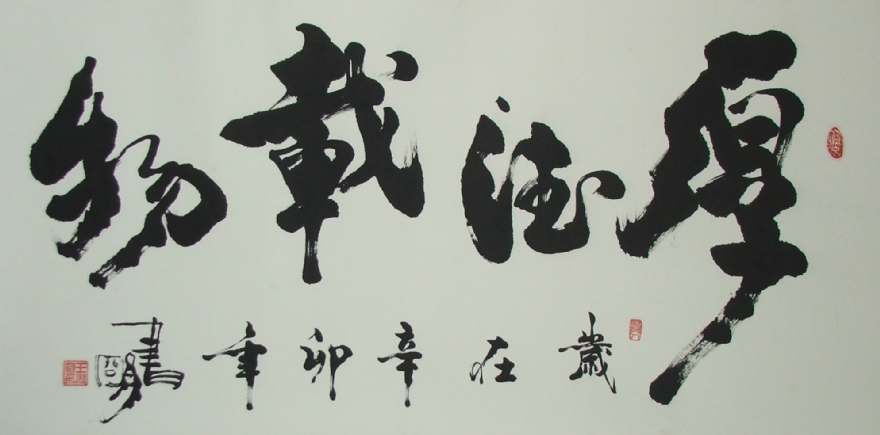 厚德載物
歲在辛卯年